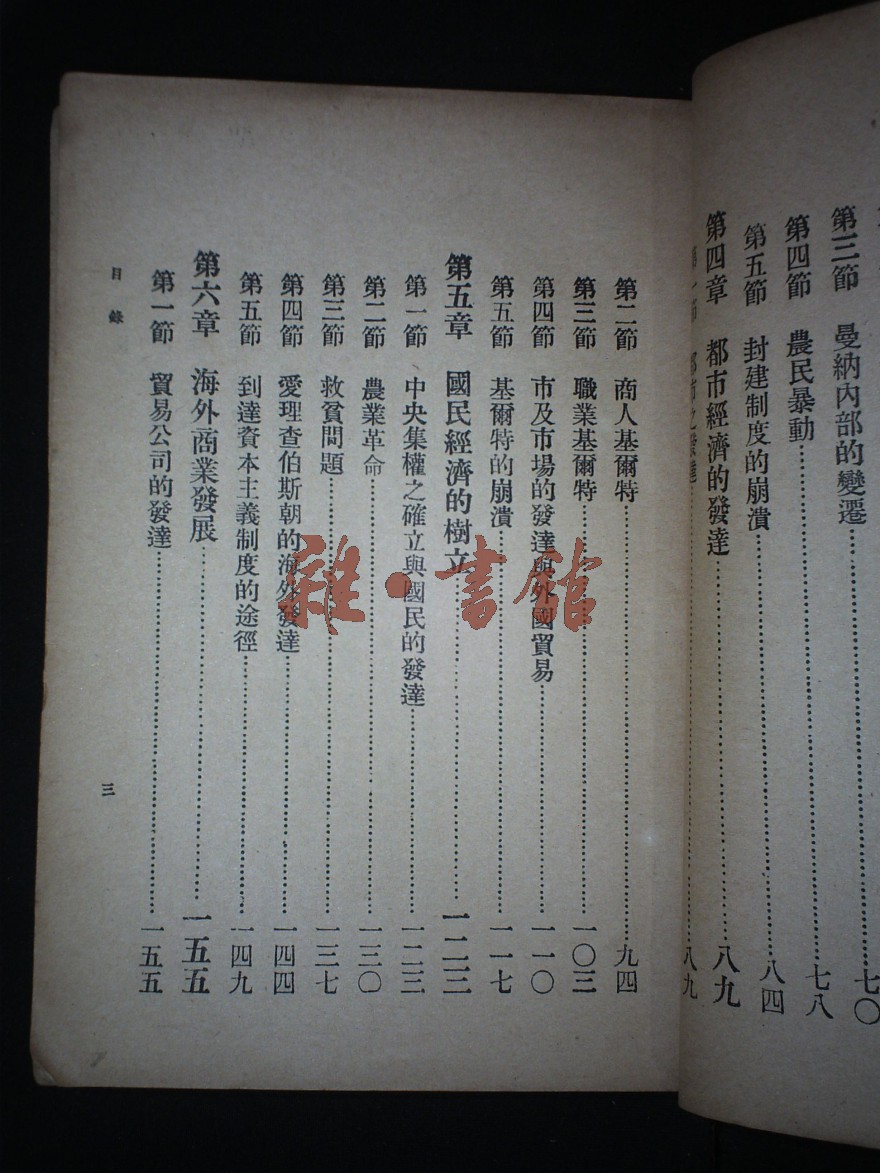 第三節　曼納內部的變遷……七〇
第四節　農民暴動……七八
第五節　封建制度的崩潰……八四
第四章　都市經濟的發達……八九
第一節　都市之發達……八九
第二節　商人基爾特……九四
第三節　職業基爾特……一〇三
第四節　市及市場的發達與外國貿易……一一〇
第五節　基爾特的崩潰……一一七
第五章　國民經濟的樹立……一二三
第一節　中央集權之確立與國民的發達……一二三
第二節　農業革命……一三〇
第三節　救貧問題……一三七
第四節　愛理查伯斯朝的海外發達……一四四
第五節　到達資本主義制度的途徑……一四九
第六章　海外商業發展……一五五
第一節　貿易公司的發達……一五五
目錄
三
雜·書館